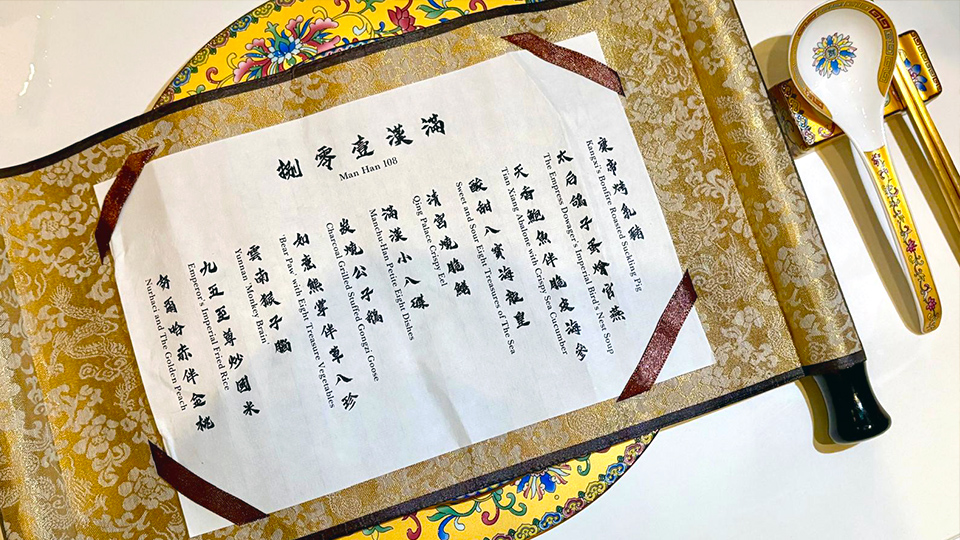 滿漢壹零捌
Man Han 108
康帝烤乳豬
Kangxi's Bonfire Roasted Suckling Pig
太后鴿子蛋燴官燕
The Empress Dowager's Imperial Bird's Nest Soup
天香鮑魚伴脆皮海參
Tian Xiang Abalone with Crispy Sea Cucumber
酸甜八寶海龍皇
Sweet and Sour Eight Treasures of The Sea
清宮燒脆鱔
Qing Palace Crispy Eel
滿漢小八碟
Manchu-Han Petite Eight Dishes
炭燒公子鵝
Charcoal Grilled Stuffed Gongzi Goose
如意熊掌伴草八珍
'Bear Paw' with Eight Treasure Vegetables
雲南猴子腦
Yunnan 'Monkey Brain'
九五至尊炒國米
Emperor's Imperial Fried Rice
努爾哈赤伴金桃
Nurhaci and The Golden Peach